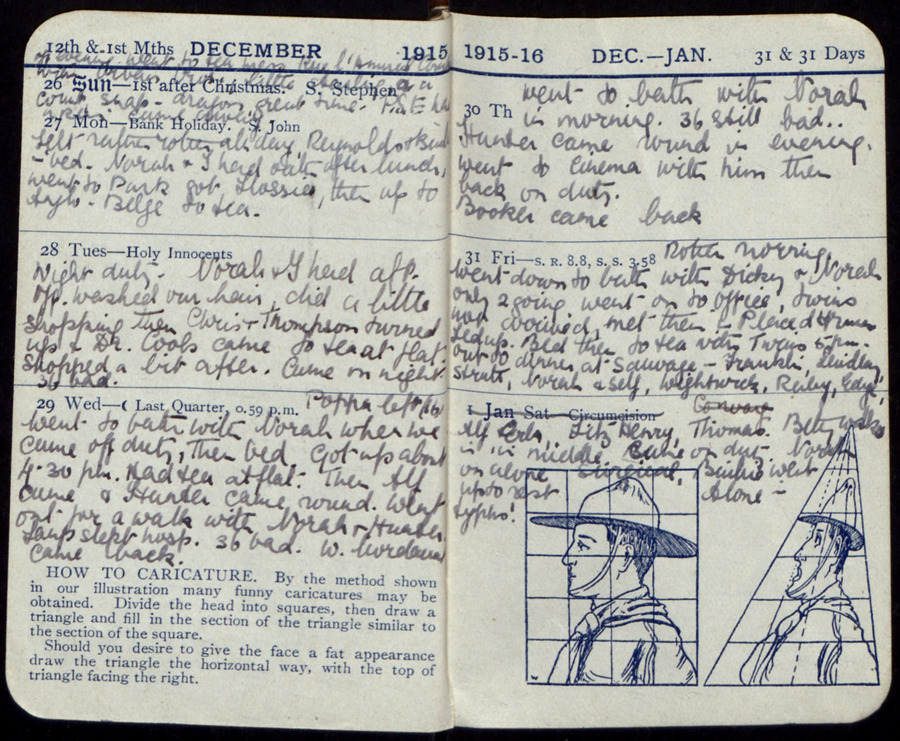 12th & 1st Mths DECEMBER 1915
evening went to tea
26 Sun—1st after Christmas. S. Stephen
snap - dragon great time.
27 Mon—Bank Holiday. S. John
Felt rather rotten all day. Reynolds
- bed. Norah & I had after lunch,
went to Park got Flossie, then up to
Anglo - Belge to tea.
28 Tues—Holy Innocents
Night duty. Norah & I had aft.
off. washed our hair, did a little
shopping then Chris & Thompson turned
up & Dr. came to tea at flat.
Shopped a bit after. Came on night
36 bad.
29 Wed—☾ Last Quarter, 0.59 p.m. Poppa left
went to bath with Norah when we
came off duty, then bed. Got up about
4.30 pm. Had tea at flat. Then Alf
came & Hunter came round. Went
out for a walk with Norah & Hunter
slept hosp. 36 bad. W.
came back.
HOW TO CARICATURE. By the method shown
in our illustration many funny caricatures may be
obtained. Divide the head into squares, then draw a
triangle and fill in the section of the triangle similar to
the section of the square.
Should you desire to give the face a fat appearance
draw the triangle the horizontal way, with the top of
triangle facing the right.
1915-16 DEC.—JAN. 31 & 31 Days
30 Th went to bath with Norah
in morning. 36 still bad..
Hunter came round in evening.
went to Cinema with him then
back on duty.
Booker came back
31 Fri—S. R. 8.8, S. S. 3.58 Rotten morning,
went down to bath with Dicky & Norah
only 2 going went on to office, twins
had met them
Fed up. Bed then to tea with Twins 5 pm.
out to dinner at Sauvage - Franklin, Lindley,
Strutt, Norah & self, Wightwick, Reiley, Edge,
1 Jan Sat—Circumcision Conway
Alf Fitz Henry, Thomas. Betty
is in middle. Came on duty Norah
on alone Surgical, went
up to rest alone -
typhs!